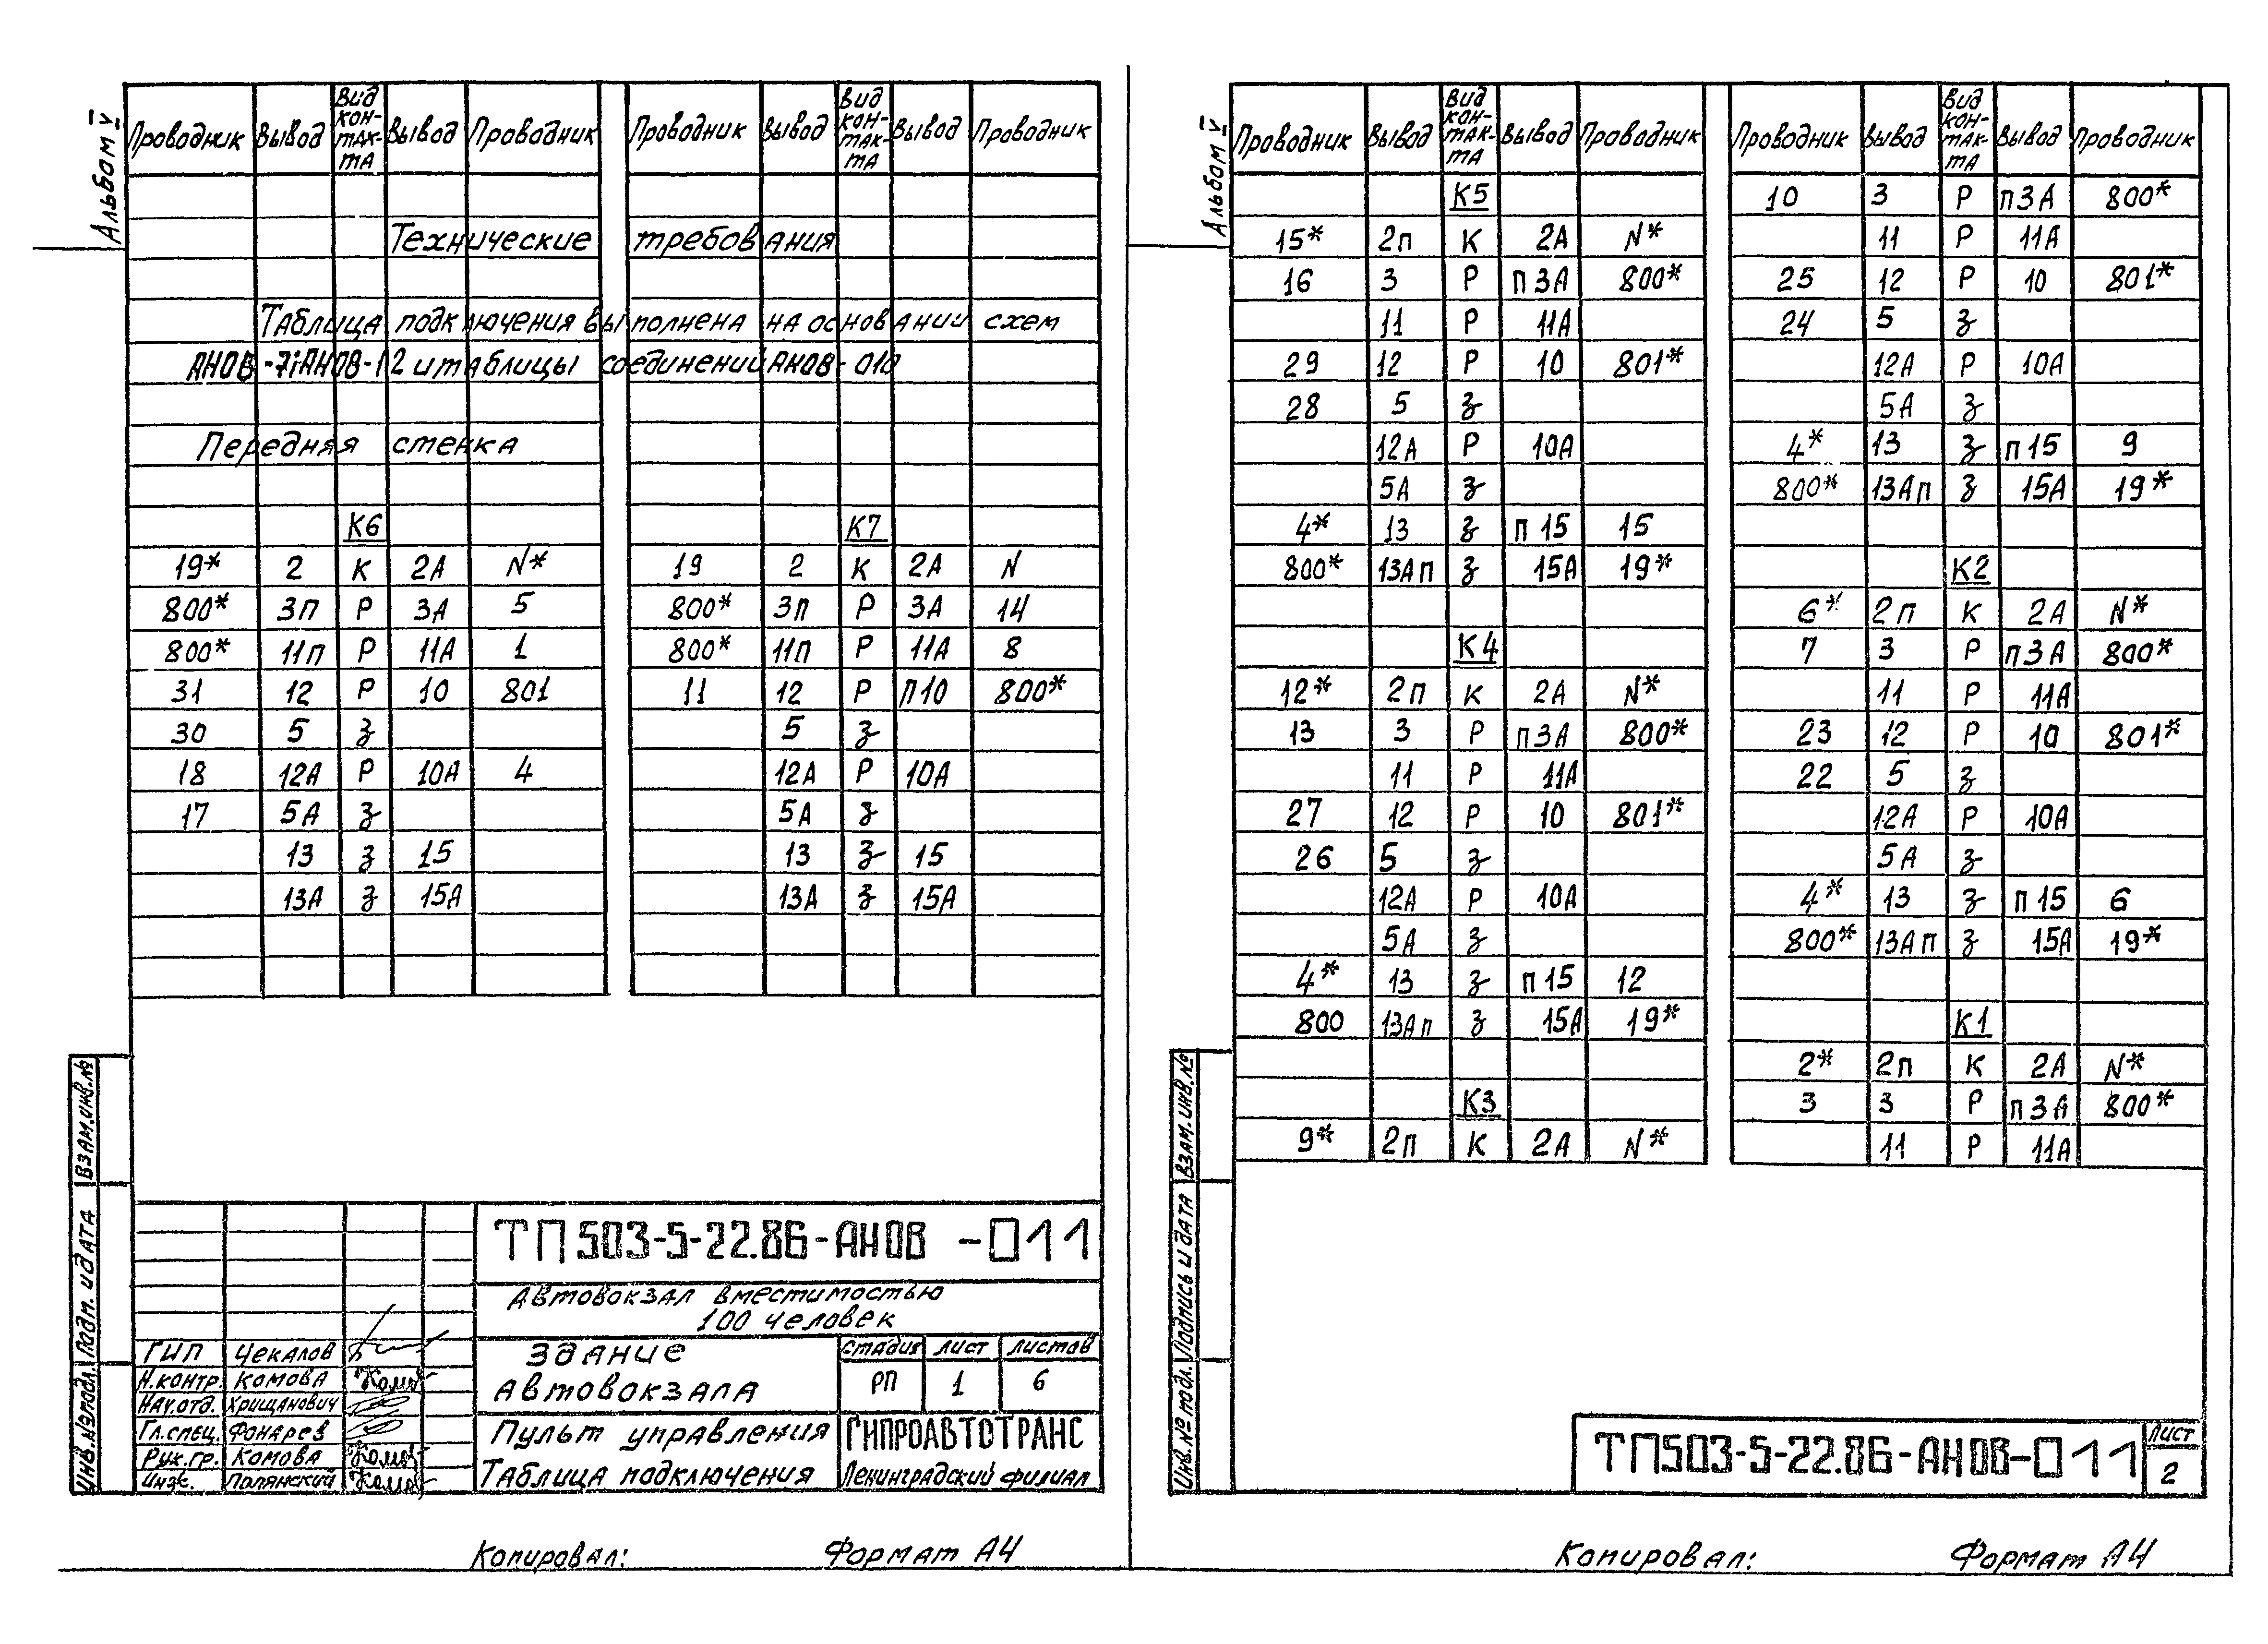 Альбом V
Проводник Вывод Вид кон-так-та Вывод Проводник Проводник Вывод Вид кон-так-та Вывод Проводник
Технические требования
Таблица подключения выполнена на основании схем
АНОВ-7 и АНОВ-12 и таблицы соединений АНОВ-010
Передняя стенка
К6 К7
19* 2 К 2А N* 19 2 К 2А N
800* 3П Р 3А 5 800* 3П Р 3А 14
800* 11П Р 11А 1 800* 11П Р 11А 8
31 12 Р 10 801 11 12 Р П10 800*
30 5 З 5 З
18 12А Р 10А 4 12А Р 10А
17 5А З 5А З
13 З 15 13 З 15
13А З 15А 13А З 15А
ТП 503-5-22.86-АНОВ -011
Автовокзал вместимостью
100 человек
ГИП Чекалов
Н.контр. Комова
Нач.отд. Хрищанович
Гл.спец. Фонарев
Рук.гр. Комова
Инж. Полянский
Здание
автовокзала
Стадия Лист Листов
РП 1 6
Пульт управления
Таблица подключения
ГИПРОАВТОТРАНС
Ленинградский филиал
Инв.№подл. Подп. и дата Взам.инв.№
Копировал: Формат А4
Альбом V
Проводник Вывод Вид кон-так-та Вывод Проводник Проводник Вывод Вид кон-так-та Вывод Проводник
К5 10 3 Р П3А 800*
15* 2п К 2А N* 11 Р 11А
16 3 Р П3А 800* 25 12 Р 10 801*
11 Р 11А 24 5 З
29 12 Р 10 801* 12А Р 10А
28 5 З 5А З
12А Р 10А 4* 13 З П15 9
5А З 800* 13АП З 15А 19*
4* 13 З П15 15
800* 13АП З 15А 19* К2
6* 2П К 2А N*
К4 7 3 Р П3А 800*
12* 2П К 2А N* 11 Р 11А
13 3 Р П3А 800* 23 12 Р 10 801*
11 Р 11А 22 5 З
27 12 Р 10 801* 12А Р 10А
26 5 З 5А З
12А Р 10А 4* 13 З П15 6
5А З 800* 13АП З 15А 19*
4* 13 З П15 12
800 13Ап З 15А 19* К1
2* 2П К 2А N*
К3 3 3 Р П3А 800*
9* 2П К 2А N* 11 Р 11А
Инв.№ подл. Подпись и дата Взам.инв.№
ТП503-5-22.86-АНОВ-011
Лист
2
Копировал: Формат А4